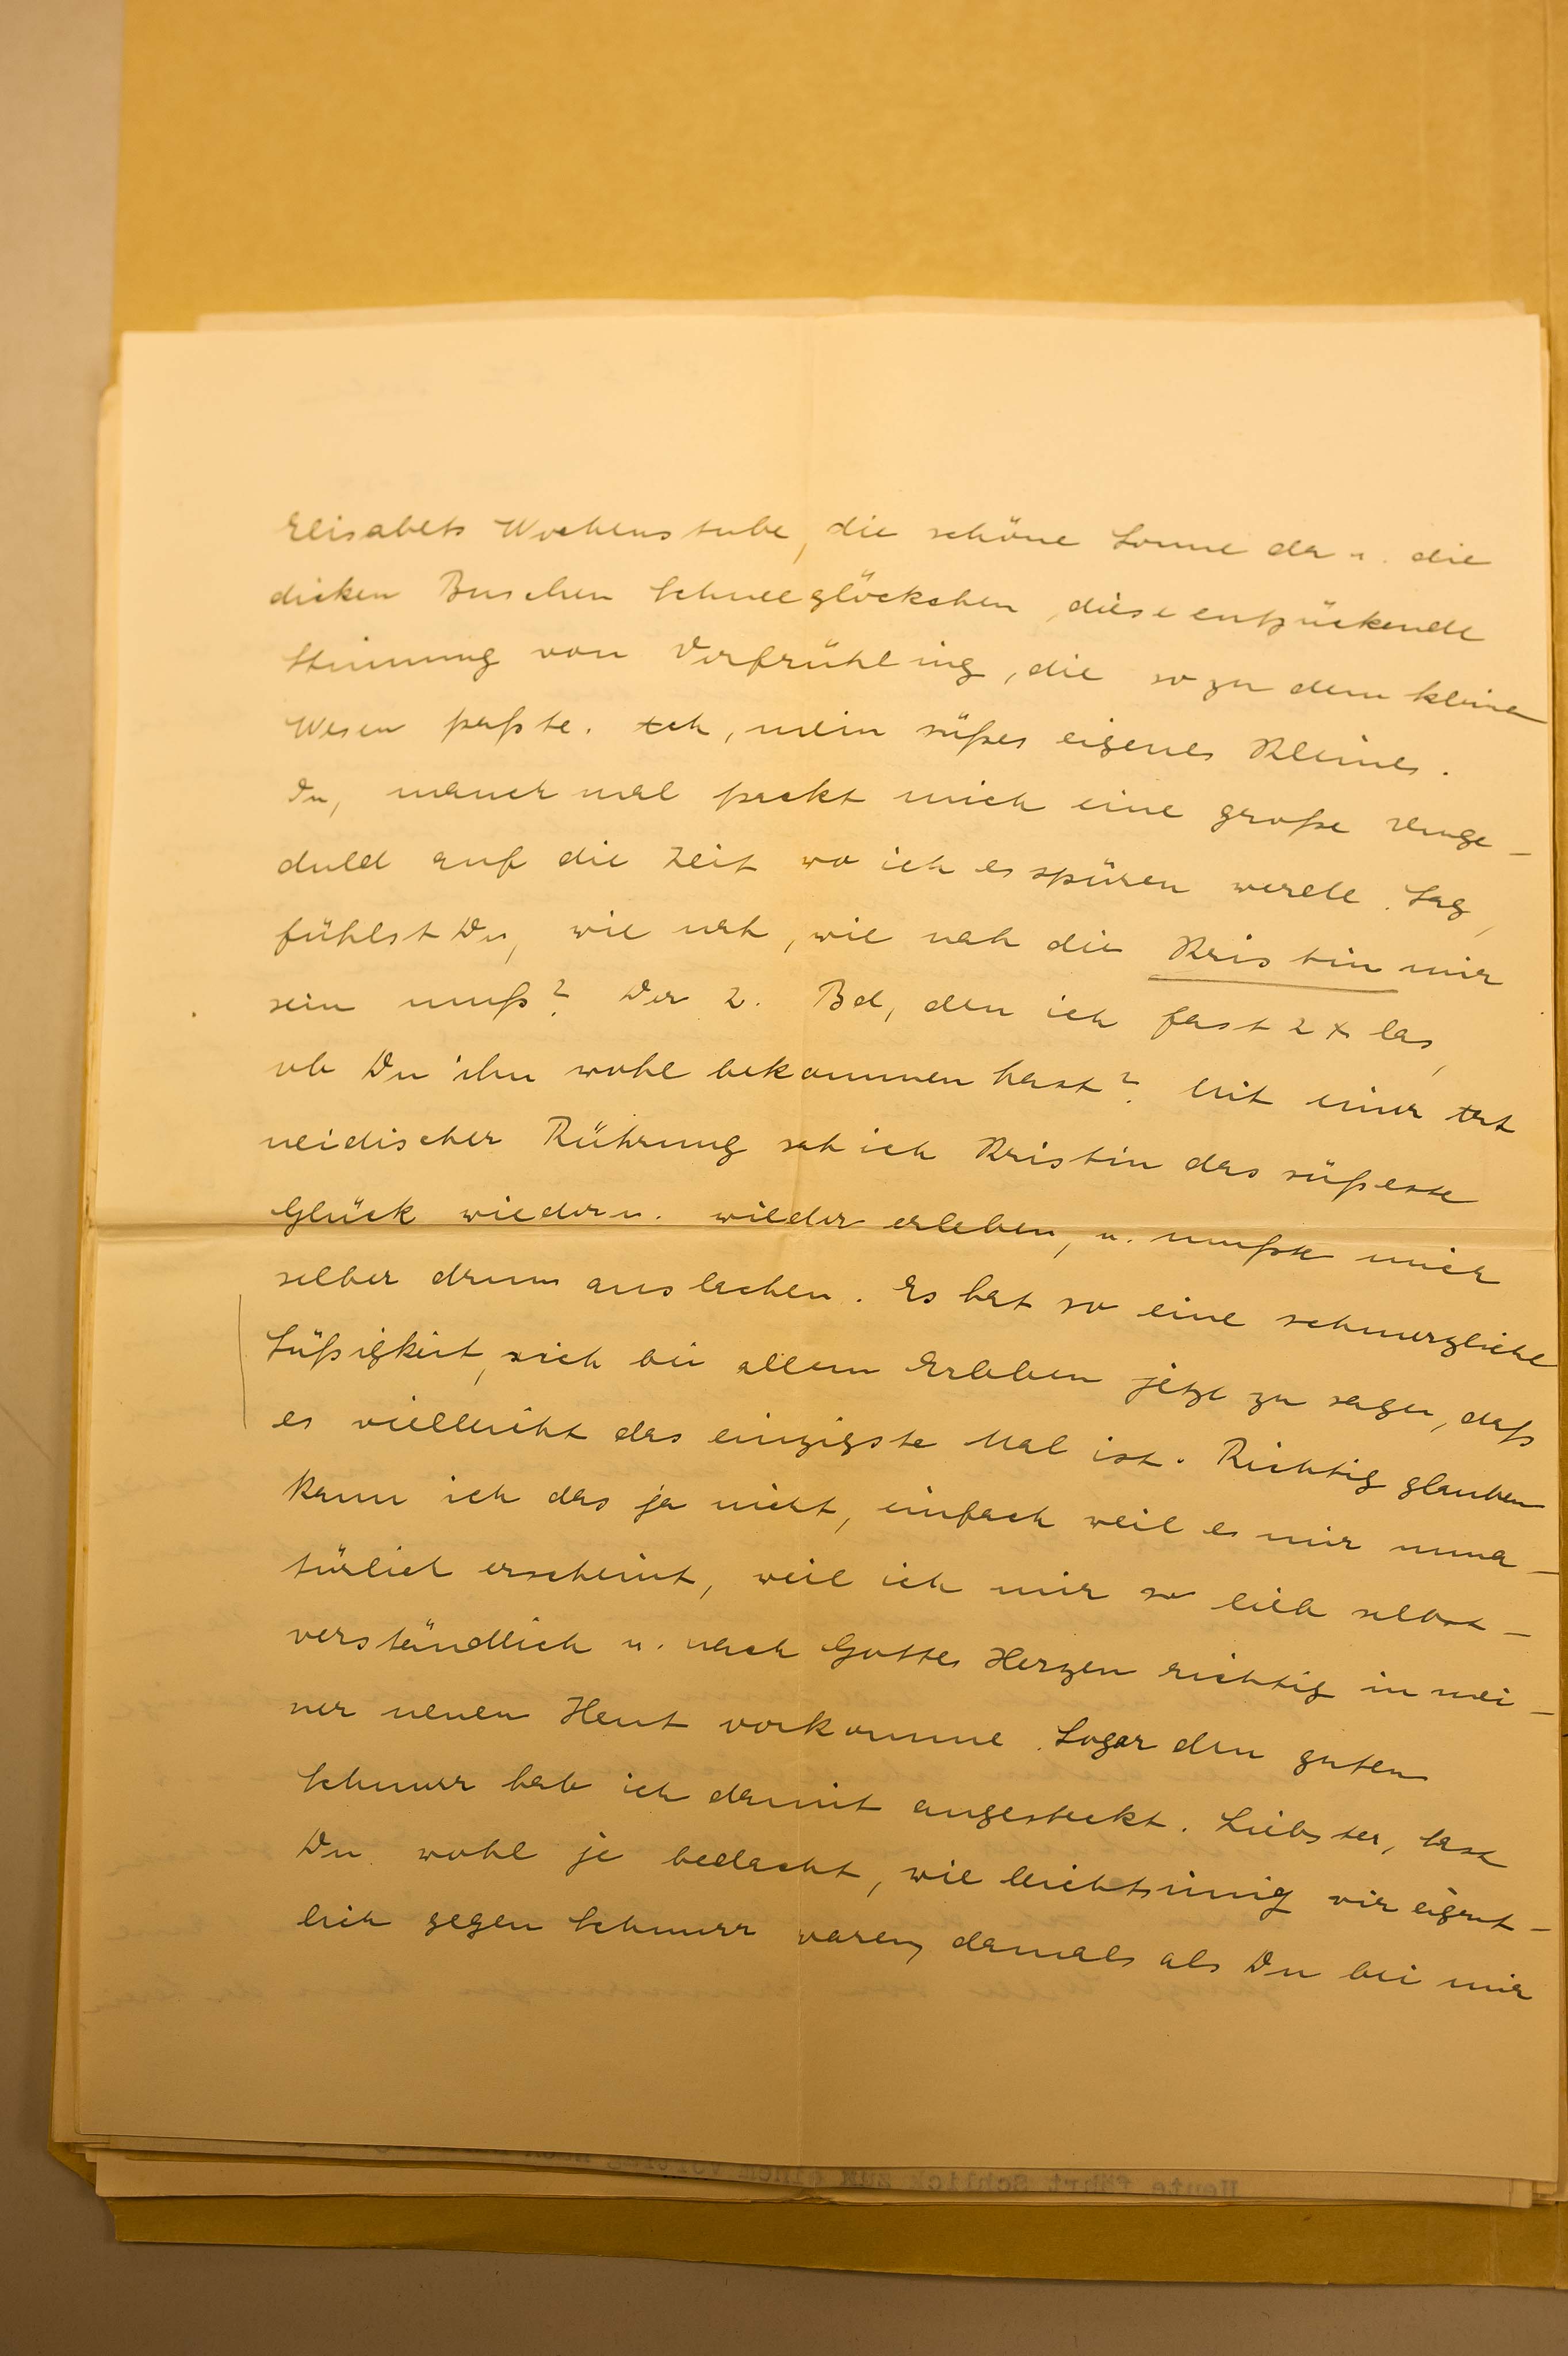 Elisabets Wochenstube, die schöne Sonne da u. die
dicken Buschen Schneeglöckchen, diese entzückende
Stimmung von Vorfrühling, die so zu dem kleinen
Wesen paßte. Ach, mein süßes eigenes Kleines.
Du, manchmal packt mich eine große Unge-
duld auf die Zeit wo ich es spüren werde. Sag,
fühlst Du, wie nah, wie nah die Kristin mir
sein muß? Der 2. Bd, den ich fast 2 x las,
ob Du ihn wohl bekommen hast? Mit einer Art
neidischer Rührung sah ich Kristin das süßeste
Glück wieder u. wieder erleben, u. mußte mich
selber drum auslachen. Es hat so eine schmerzliche
Süßigkeit, sich bei allem Erleben jetzt zu sagen, daß
es vielleicht das einzigste Mal ist. Richtig glauben
kann ich das ja nicht, einfach weil es mir unna-
türlich erscheint, weil ich mir so lieb selbst-
verständlich u. nach Gottes Herzen richtig in mei-
ner neuen Haut vorkomme. Sogar den guten
Schnurr hab ich damit angesteckt. Liebster, hast
Du wohl je bedacht, wie leichtsinnig wir eigent-
lich gegen Schnurr waren, damals als Du bei mir
Heute fährt Schlick zum einem Vortrag nach